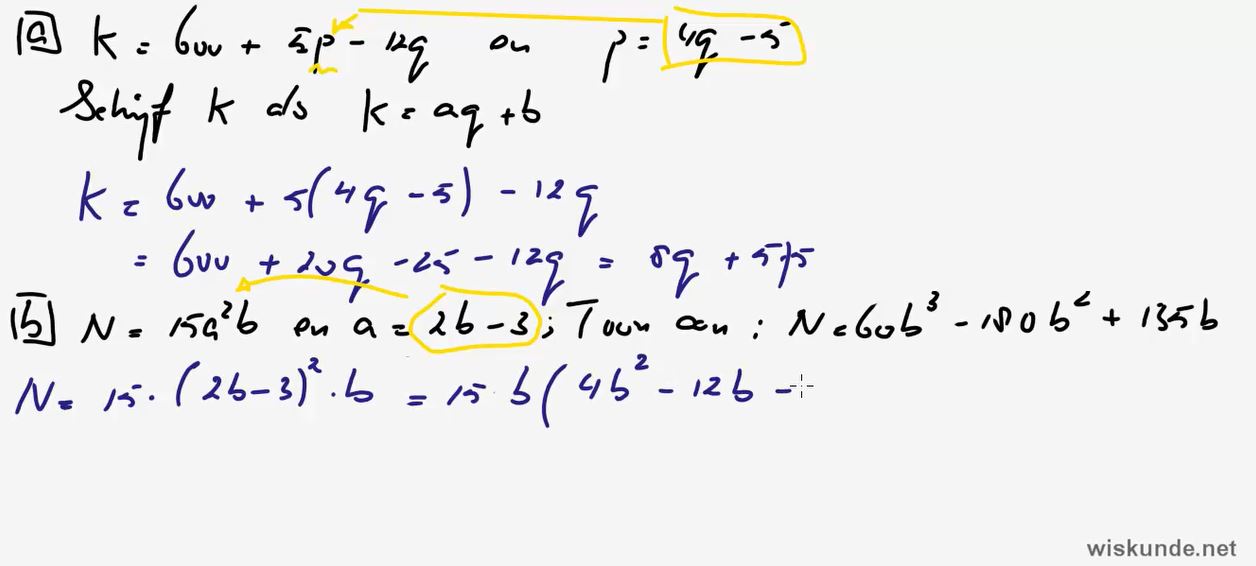 a K = 600 + 5p - 12q en p = 4q - 5
Schrijf K als K = aq + b
K = 600 + 5(4q - 5) - 12q
= 600 + 20q - 25 - 12q = 8q + 575
b N = 15a²b en a = 2b - 3 ; Toon aan : N = 60b³ - 180b² + 135b
N = 15 · (2b - 3)² · b = 15 b (4b² - 12b -
wiskunde.net